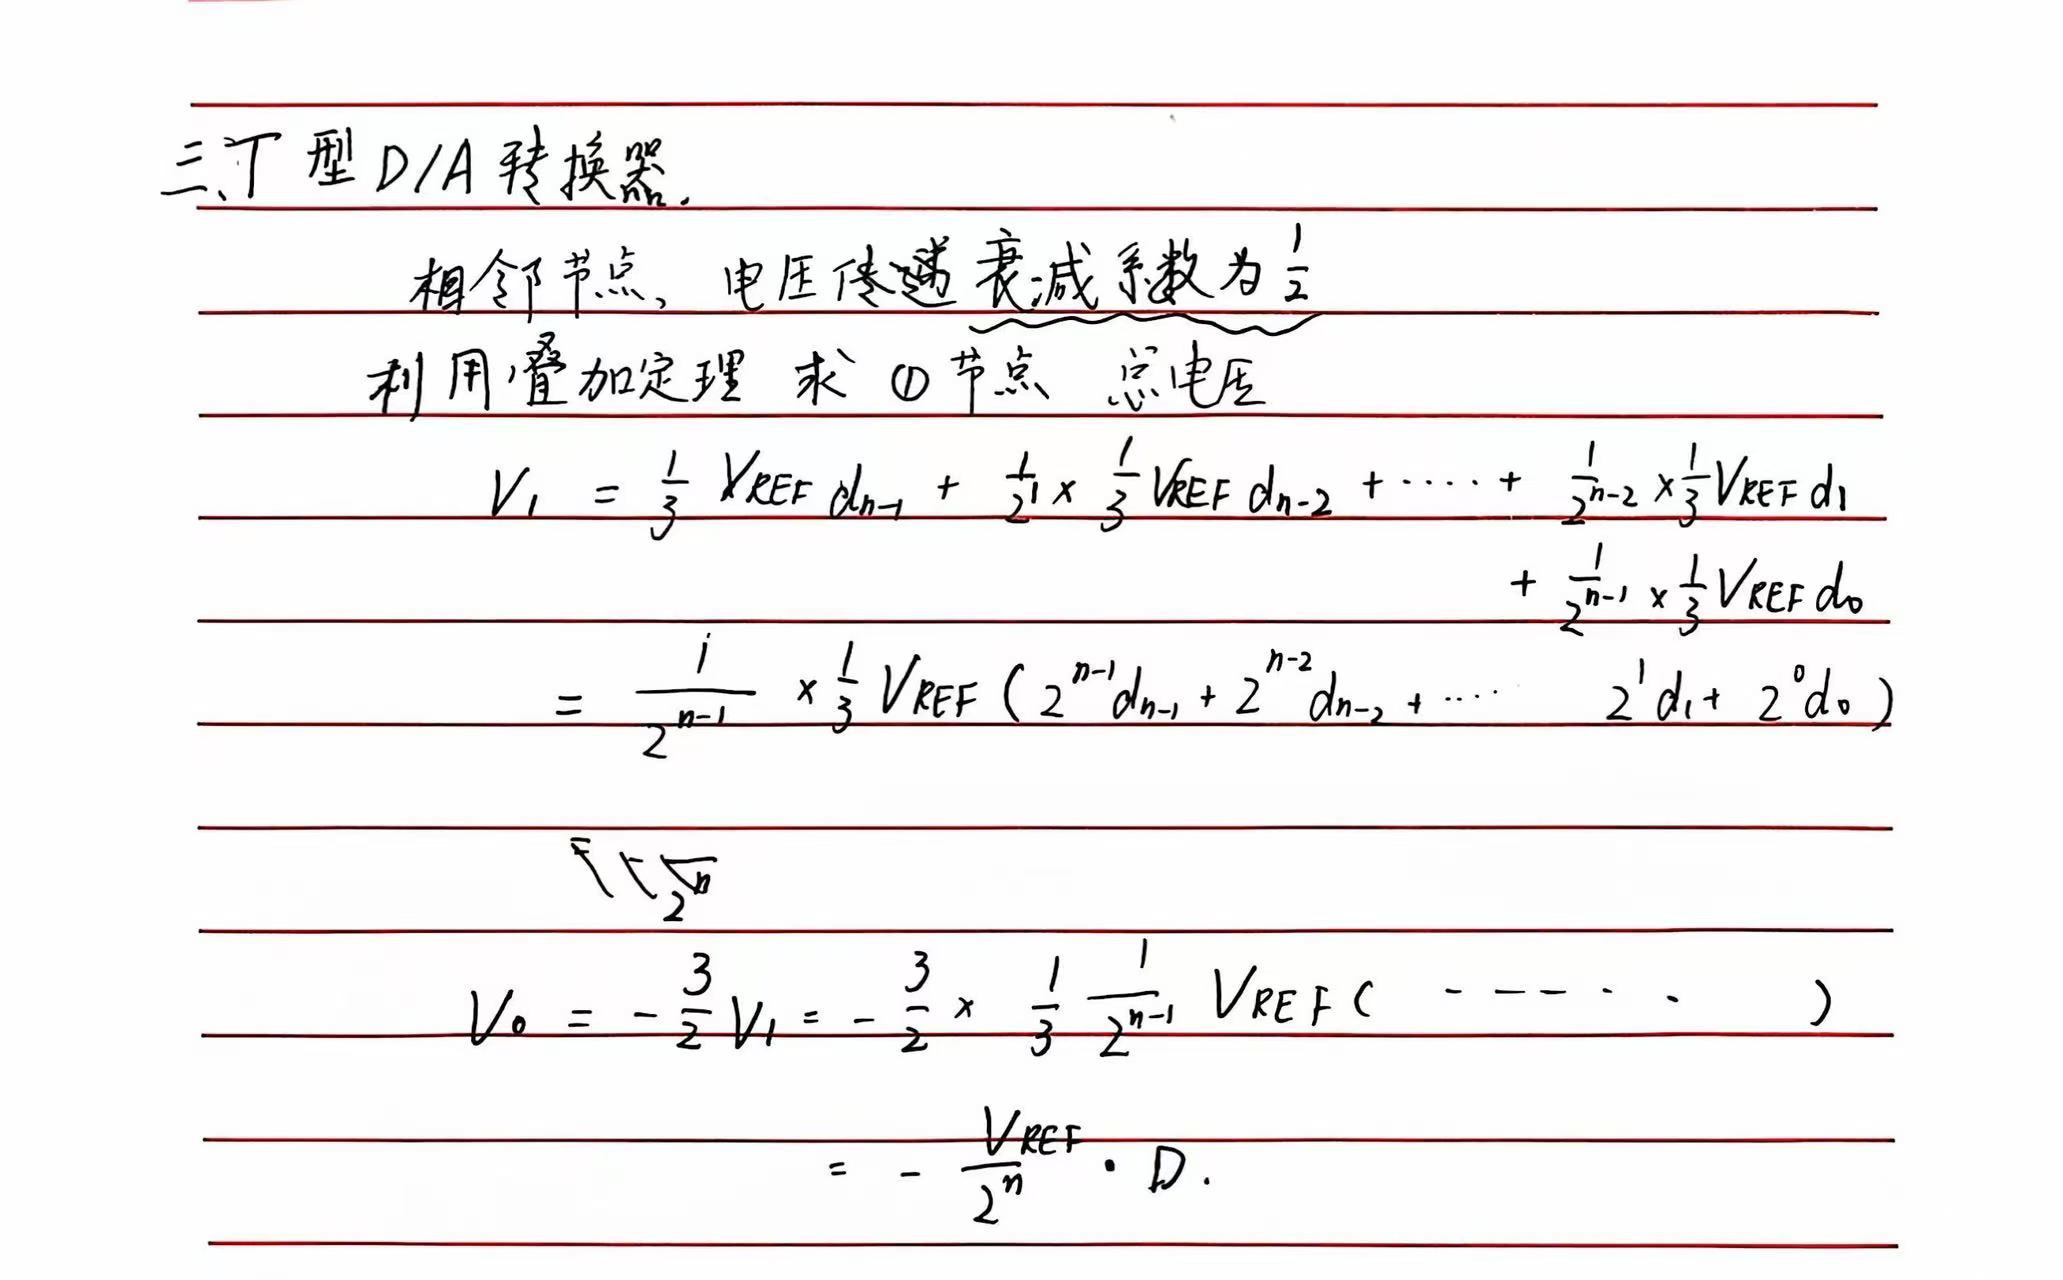 三、T型D/A转换器.
相邻节点、电压传递衰减系数为 1/2
利用叠加定理 求 ① 节点 总电压
V₁ = 1/3 V_REF d_{n-1} + 1/2¹ × 1/3 V_REF d_{n-2} + ····· + 1/2^{n-2} × 1/3 V_REF d₁
+ 1/2^{n-1} × 1/3 V_REF d₀
= 1/2^{n-1} × 1/3 V_REF ( 2^{n-1} d_{n-1} + 2^{n-2} d_{n-2} + ···· 2¹ d₁ + 2⁰ d₀ )
2^n
V₀ = - 3/2 V₁ = - 3/2 × 1/3 1/2^{n-1} V_REF ( - - - - · · )
= - V_REF/2^n · D.